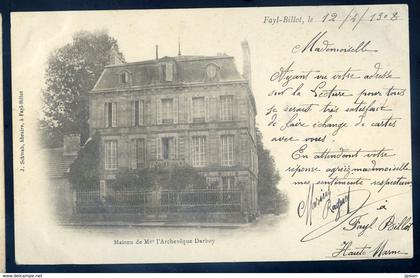 Fayl-Billot, le 12/4/1902
Mademoiselle
Ayant vu votre adresse
sur la Lecture pour tous
je serait très satisfait
de faire échange de cartes
avec vous.
En attendant votre
réponse agréez mademoiselle
mes sentiments respectueux
à
Fayl Billot
Haute Marne
Maison de Mgr l'Archevêque Darboy
J. Schwab, libraire, à Fayl-Billot